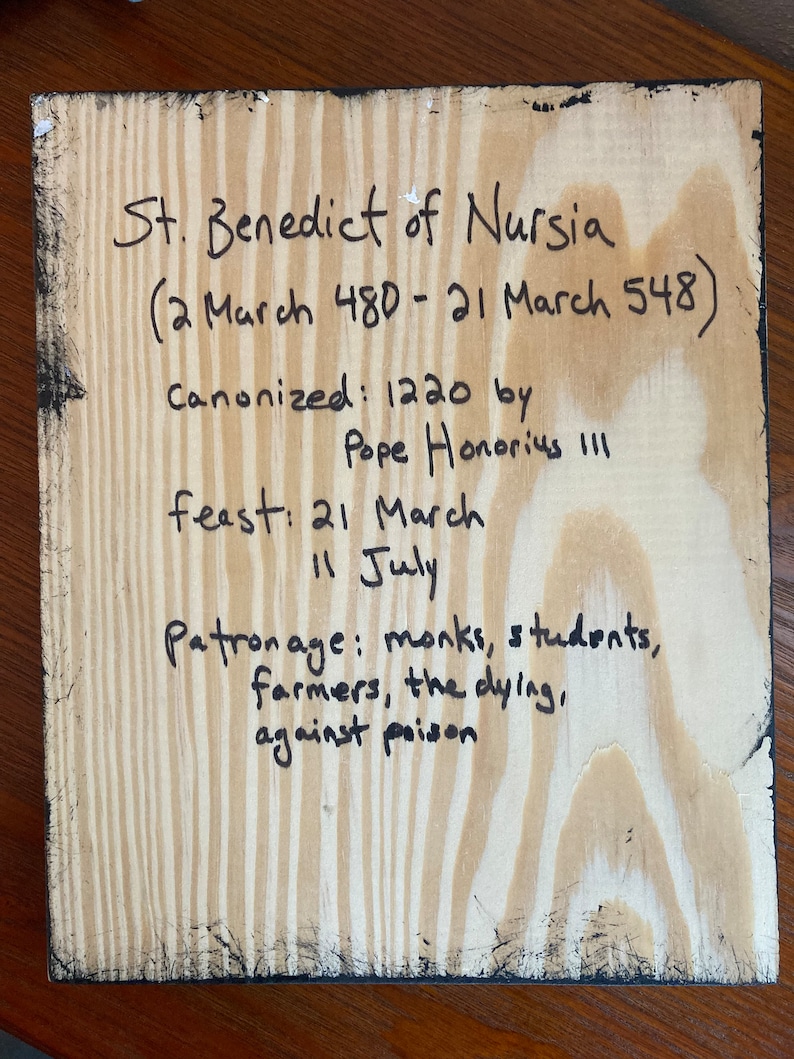 St. Benedict of Nursia
(2 March 480 - 21 March 548)
canonized: 1220 by
Pope Honorius III
feast: 21 March
11 July
patronage: monks, students,
farmers, the dying,
against poison